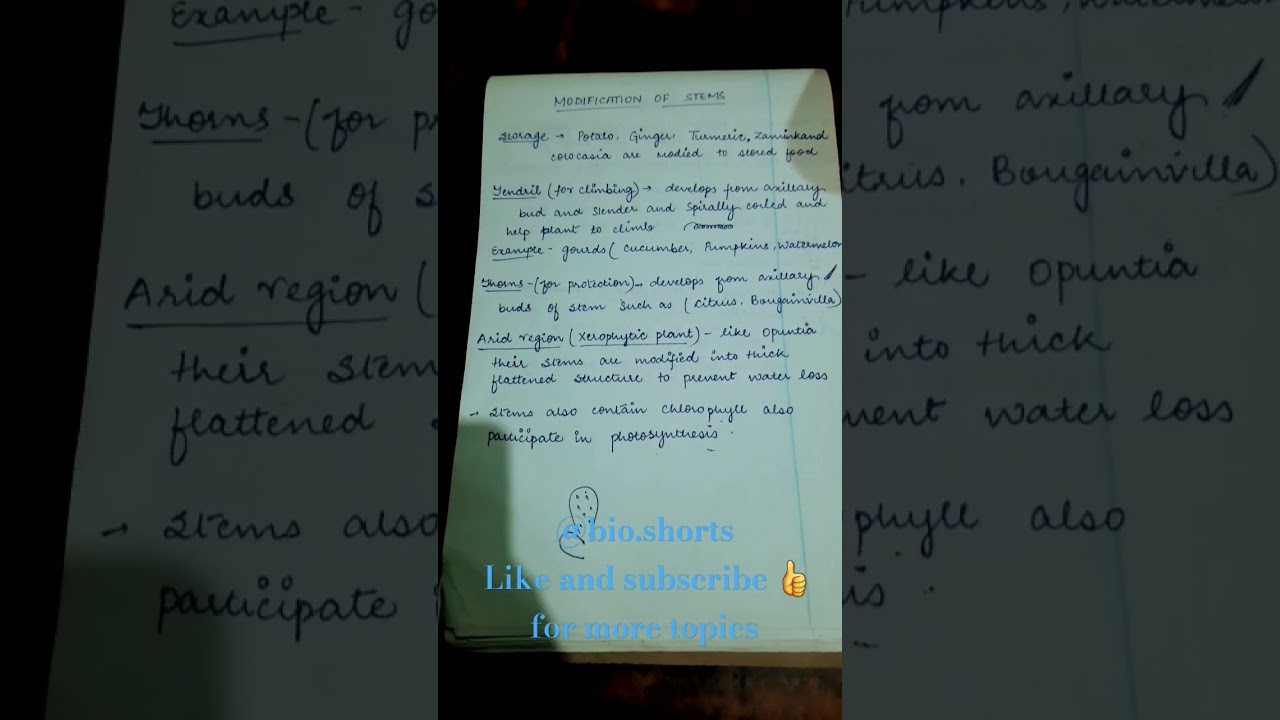 MODIFICATION OF STEMS
Storage → Potato, Ginger, Turmeric, Zaminkand
colocasia are modied to stored food
Tendril (for climbing) → develops from axillary
bud and slender and spirally coiled and
help plant to climb
Example - gourds (cucumber, Pumpkins, watermelon
Thorns - (for protection) → develops from axillary
buds of stem such as (citrus. Bougainvilla)
Arid region (Xerophytic plant) - like opuntia
their stems are modified into thick
flattened structure to prevent water loss
→ Stems also contain chlorophyll also
participate in photosynthesis.
@bio.shorts
Like and subscribe 👍
for more topics